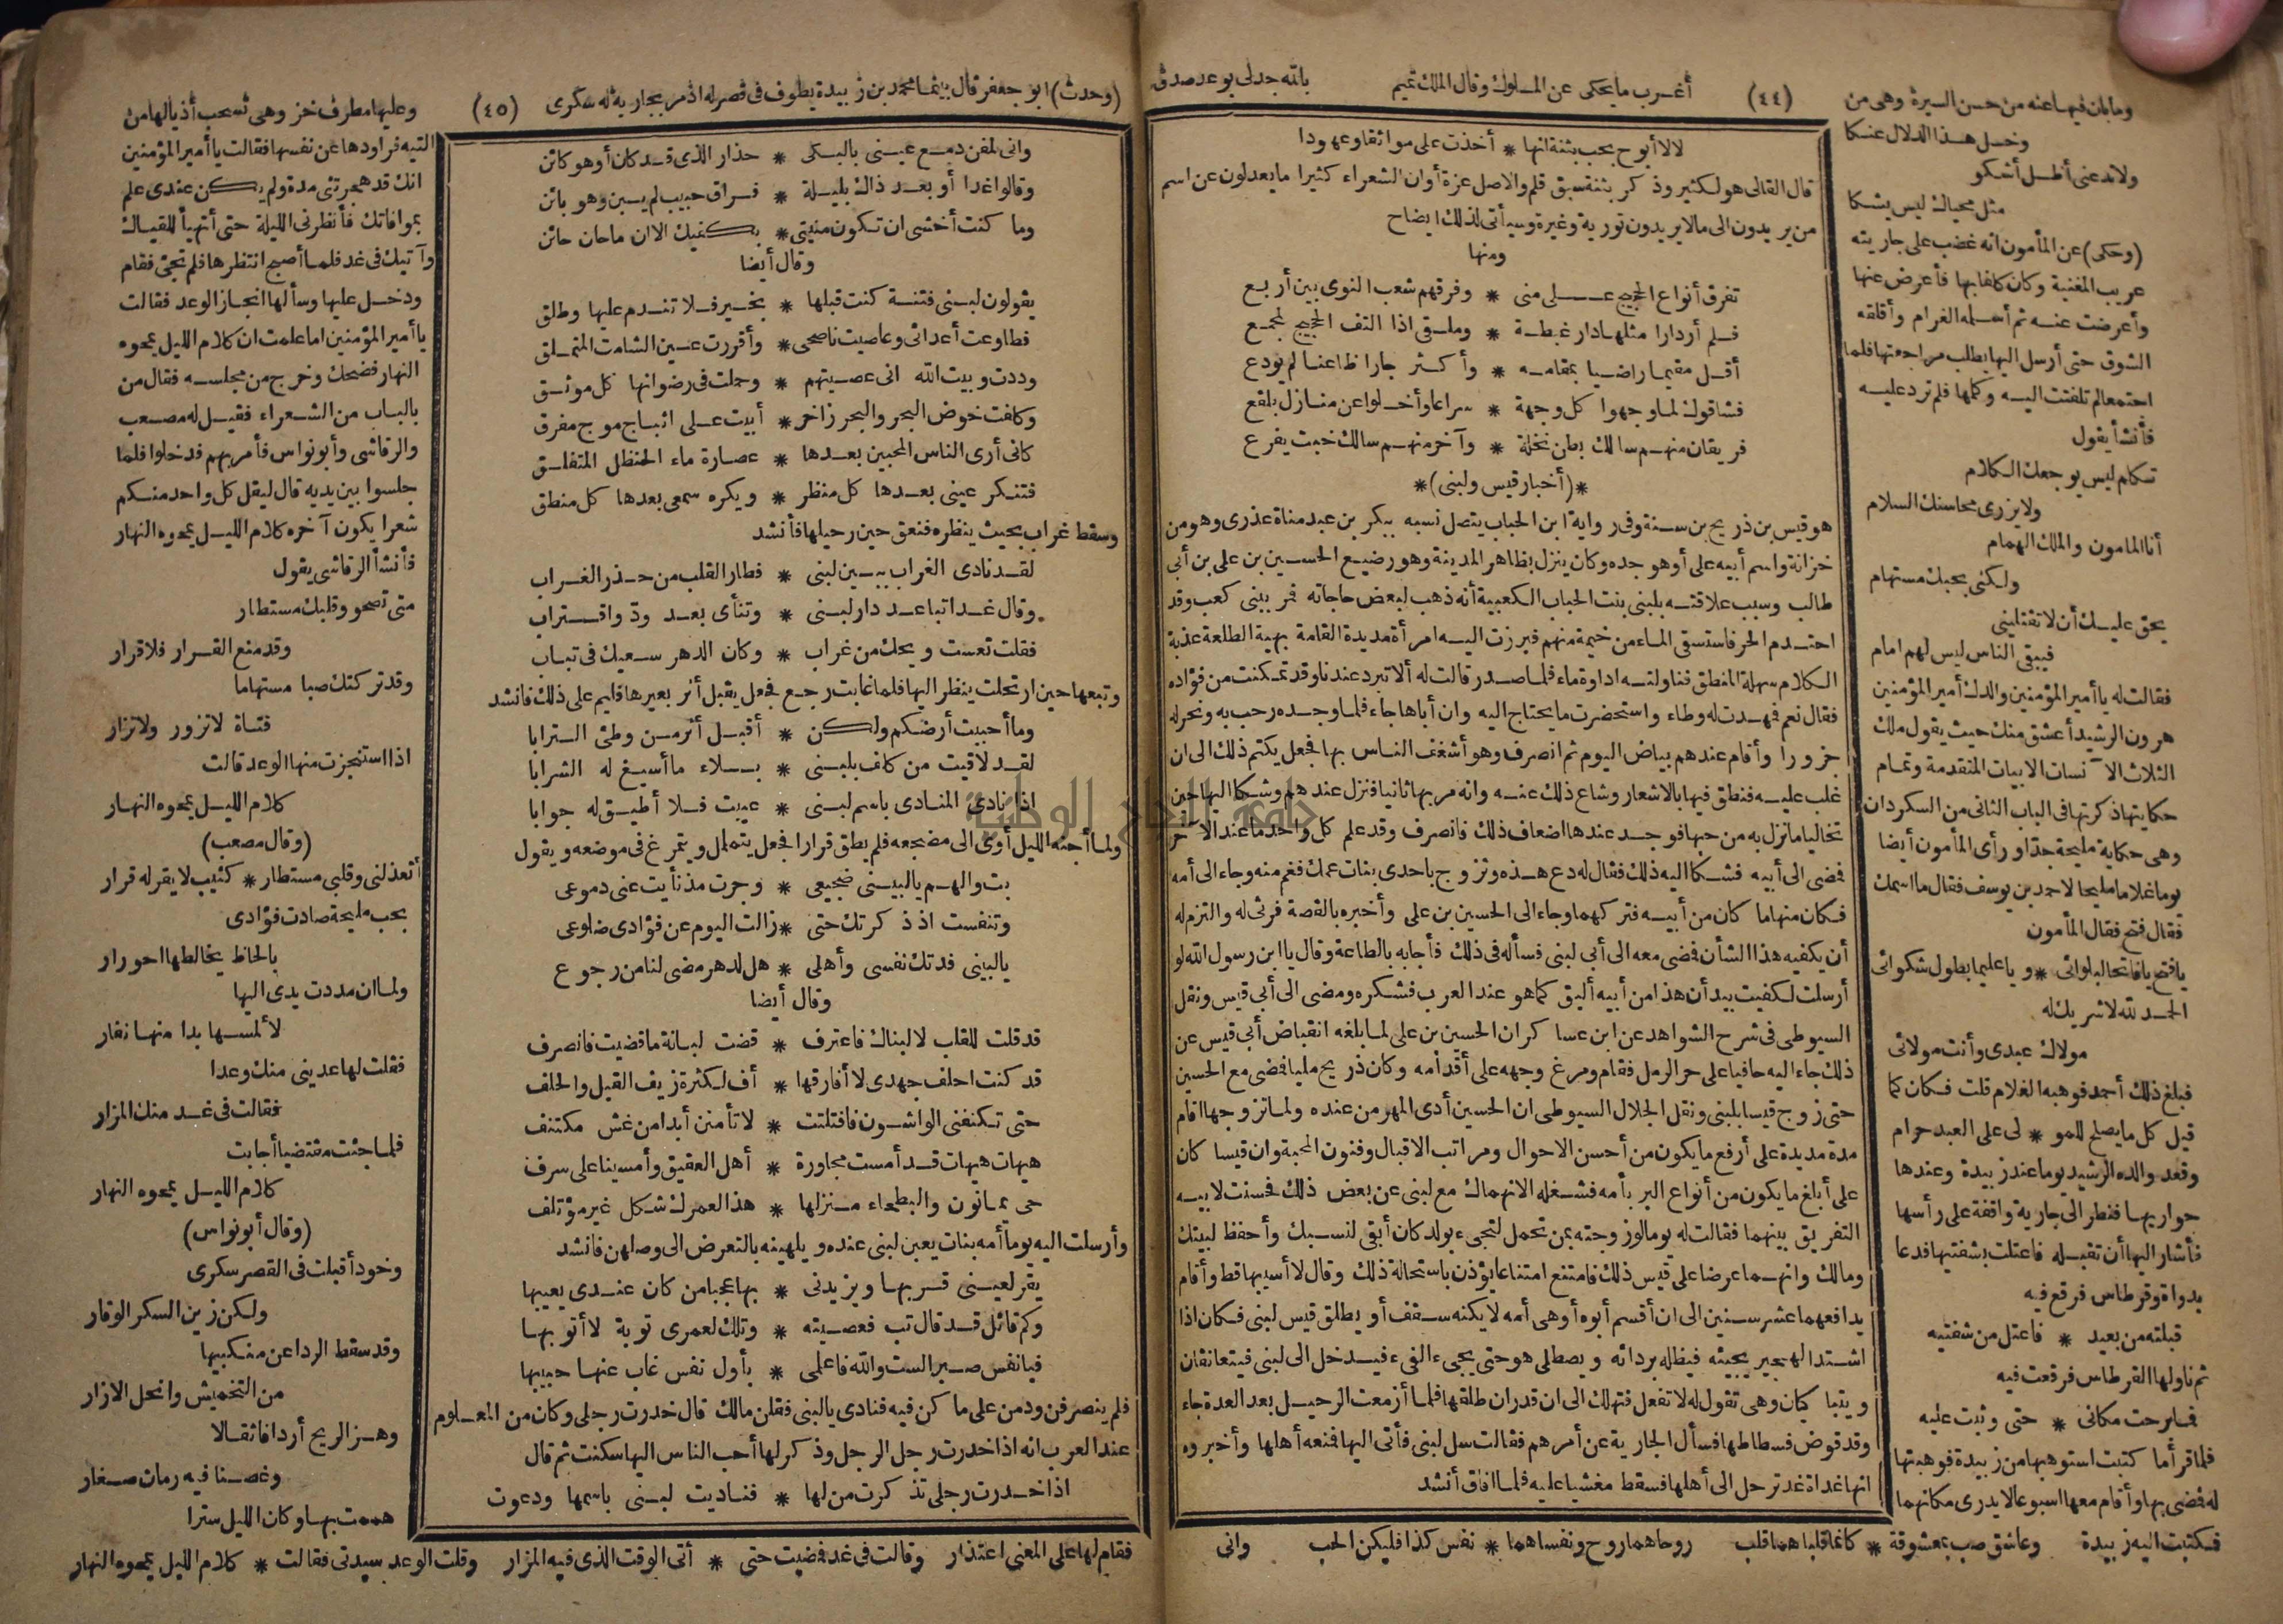 أغرب ما يحكى عن الملوك وقال الملك تميم
(٤٤)
بالله جدلى بوعد صدق
وما بان فيها عنه من حسن السيرة وهى من
وخل هذا الدلال عنكا
ولا تدعنى أظل أشكو
مثل محياك ليس يشكا
(وحكى) عن المأمون انه غضب على جاريته
عريب المغنية وكان كلفا بها فأعرض عنها
وأعرضت عنه ثم أسلمه الغرام وأقلقه
الشوق حتى أرسل اليها يطلب مراجعتها فلما
اجتمعا لم تلتفت اليه وكلها فلم ترد عليه
فأنشأ يقول
تكلم ليس يوجعك الكلام
ولا يزرى محاسنك السلام
أنا المامون والملك الهمام
ولكنى بحبك مستهام
يحق عليك أن لا تقتلينى
فيبقى الناس ليس لهم امام
فقالت له يا أمير المؤمنين والدك أمير المؤمنين
هرون الرشيد أعشق منك حيث يقول ملك
الثلاث الآنسات الابيات المتقدمة وتمام
حكايتها ذكرتها فى الباب الثانى من السكردان
وهى حكاية مليحة جدا ورأى المأمون أيضا
يوما غلاما مليحا لاحمد بن يوسف فقال ما اسمك
فقال فتح فقال المأمون
يا فتح يا فاتحا لبلوائى * ويا عليما بطول شكوائى
الحمد لله لا شريك له
مولاك عبدى وأنت مولائى
فبلغ ذلك أحمد فوهبه الغلام قلت فكان كما
قيل كل ما يصلح للمو * لى على العبد حرام
وقعد والده الرشيد يوما عند زبيدة وعندها
جواريها فنظر الى جارية واقفة على رأسها
فأشار اليها أن تقبله فاعتلت بشفتيها فدعا
بدواة وقرطاس فوقع فيه
قبلته من بعيد * فاعتل من شفتيه
ثم ناولها القرطاس فوقعت فيه
فما برحت مكانى * حتى وثبت عليه
فلما قرأ ما كتبت استوهبها من زبيدة فوهبتها
له فمضى بها وأقام معها اسبوعا لا يدرى مكانهما
فكتبت اليه زبيدة وعاشق صب بمعشوقة * كانما قلباهما قلب روحاهما روح ونفساهما * نفس كذا فليكن الحب
وانى
لا لا أبوح بحب بثنة انها * أخذت على مواثقا وعهودا
قال القالى هو لكثير وذكر بثنة سبق قلم والاصل عزة أو ان الشعراء كثيرا ما يعدلون عن اسم
من يريدون الى مالا يريدون تورية وغيرة وسيأتى لذلك ايضاح
ومنها
تفرق أنواع الحجيج على منى * وفرقهم شعب النوى بين أربع
فلم أر دارا مثلها دار غبطة * وملقى اذا التف الحجيج لمجمع
أقل مقيما راضيا بمقامه * وأكثر جارا ظاعنا لم يودع
فشاقوك لما وجهوا كل وجهة * سراعا وأخلوا عن منازل بلقع
فريقان منهم سالك بطن نخلة * وآخر منهم سالك خبت يفرع
*(أخبار قيس ولبنى)*
هو قيس بن ذريح بن سنة وفى رواية ابن الحباب يتصل نسبه ببكر بن عبد مناة عذرى وهو من
خزانة واسم أبيه على أو هو جده وكان ينزل بظاهر المدينة وهو رضيع الحسين بن على بن أبى
طالب وسبب علاقته بلبنى بنت الحباب الكعبية أنه ذهب لبعض حاجاته فمر ببنى كعب وقد
احتدم الحر فاستسقى الماء من خيمة منهم فبرزت اليه امرأة مديدة القامة بهية الطلعة عذبة
الكلام سهلة المنطق فناولته اداوة ماء فلما صدر قالت له ألا تبرد عندنا وقد تمكنت من فؤاده
فقال نعم فمهدت له وطاء واستحضرت ما يحتاج اليه وان أباها جاء فلما وجده رحب به ونحر له
جزورا وأقام عندهم بياض اليوم ثم انصرف وهو أشغف الناس بها فجعل يكتم ذلك الى ان
غلب عليه فنطق فيها بالاشعار وشاع ذلك عنه وانه مر بها ثانيا فنزل عندهم وشكا اليها حين
تخاليا ما نزل به من حبها فوجد عندها اضعاف ذلك فانصرف وقد علم كل واحد ما عند الآخر
فمضى الى أبيه فشكا اليه ذلك فقال له دع هذه وتزوج باحدى بنات عمك فغم منه وجاء الى أمه
فكان منها ما كان من أبيه فتركهما وجاء الى الحسين بن على وأخبره بالقصة فرثى له والتزم له
أن يكفيه هذا الشأن فمضى معه الى أبى لبنى فسأله فى ذلك فأجابه بالطاعة وقال يا ابن رسول الله لو
أرسلت لكفيت بيد أن هذا من أبيه أليق كما هو عند العرب فشكره ومضى الى أبى قيس ونقل
السيوطى فى شرح الشواهد عن ابن عساكر ان الحسين بن على لما بلغه انقباض أبى قيس عن
ذلك جاء اليه حافيا على حر الرمل فقام ومرغ وجهه على أقدامه وكان ذريح مليا فمضى مع الحسين
حتى زوج قيسا بلبنى ونقل الجلال السيوطى ان الحسين أدى المهر من عنده ولما تزوجها اقام
مدة مديدة على أرفع ما يكون من أحسن الاحوال ومراتب الاقبال وفنون المحبة وان قيسا كان
على أبلغ ما يكون من أنواع البر بأمه فشغله الانهماك مع لبنى عن بعض ذلك فحسنت لابيه
التفريق بينهما فقالت له يوما لو زوجته بمن تحمل لتجىء بولد كان أبقى لنسبك وأحفظ لبيتك
ومالك وانهما عرضا على قيس ذلك فامتنع امتناعا يؤذن باستحالة ذلك وقال لا أسيبها قط وأقام
يدافعهما عشر سنين الى ان أقسم أبوه أو هى أمه لا يكنه سقف أو يطلق قيس لبنى فكان اذا
اشتد الهجير يجيئه فيظله بردائه ويصطلى هو حتى يجىء الفىء فيدخل الى لبنى فيتعانقان
ويتباكيان وهى تقول له لا تفعل فتهلك الى ان قدر ان طلقها فلما أزمعت الرحيل بعد العدة جاء
وقد قوض فسطاطها فسأل الجارية عن أمرهم فقالت سل لبنى فأتى اليها فمنعه أهلها وأخبروه
انها غداة غد ترحل الى أهلها فسقط مغشيا عليه فلما افاق أنشد
(وحدث) ابو جعفر قال بينما محمد بن زبيدة يطوف فى قصر له اذ مر بجارية له سكرى
(٤٥)
وعليها مطرف خز وهى تسحب أذيالها من
وانى لمفن دمع عينى بالبكى * حذار الذى قد كان أو هو كائن
وقالوا غدا أو بعد ذاك بليلة * فراق حبيب لم يبن وهو بائن
وما كنت أخشى ان تكون منيتى * بكفيك الا ان ما حان حائن
وقال أيضا
يقولون لبنى فتنة كنت قبلها * بخير فلا تندم عليها وطلق
فطاوعت أعدائى وعاصيت ناصحى * وأقررت عين الشامت المتملق
وددت وبيت الله انى عصيتهم * وحملت فى رضوانها كل موثق
وكلفت خوض البحر والبحر زاخر * أبيت على اثباج موج مفرق
كانى أرى الناس المحبين بعدها * عصارة ماء الحنظل المتفلق
فتنكر عينى بعدها كل منظر * ويكره سمعى بعدها كل منطق
وسقط غراب بحيث ينظره فنعق حين رحيلها فأنشد
لقد نادى الغراب ببين لبنى * فطار القلب من حذر الغراب
وقال غدا تباعد دار لبنى * وتنأى بعد ود واقتراب
فقلت تعست ويحك من غراب * وكان الدهر سعيك فى تباب
وتبعها حين ارتحلت ينظر اليها فلما غابت رجع فجعل يقبل أثر بعيرها فليم على ذلك فانشد
وما أحببت أرضكم ولكن * أقبل أثر من وطئ الترابا
لقد لاقيت من كلف بلبنى * بلاء ما أسيغ له الشرابا
اذا نادى المنادى باسم لبنى * عييت فلا أطيق له جوابا
ولما أجنه الليل أوى الى مضجعه فلم يطق قرارا فجعل يتململ ويتمرغ فى موضعه ويقول
بت والهم يا لبينى ضجيعى * وجرت مذ نأيت عنى دموعى
وتنفست اذ ذكرتك حتى * زالت اليوم عن فؤادى ضلوعى
يا لبينى فدتك نفسى وأهلى * هل لدهر مضى لنا من رجوع
وقال أيضا
قد قلت للقلب لا لبناك فاعترف * قضت لبانة ما قضيت فانصرف
قد كنت احلف جهدى لا أفارقها * أف لكثرة زيف القيل والحلف
حتى تكنفنى الواشون فافتلتت * لا تأمنن أبدا من غش مكتنف
هيهات هيهات قد أمست مجاورة * أهل العقيق وأمسينا على سرف
حى يمانون والبطحاء منزلها * هذا لعمرك شكل غير مؤتلف
وأرسلت اليه يوما أمه بنات يعبن لبنى عنده ويلهينه بالتعرض الى وصلهن فانشد
يقر لعينى قربها ويزيدنى * بها عجبا من كان عندى يعيبها
وكم قائل قد قال تب فعصيته * وتلك لعمرى توبة لا أتوبها
فيا نفس صبرا لست والله فاعلمى * بأول نفس غاب عنها حبيبها
فلم ينصرفن ودمن على ما كن فيه فنادى يا لبنى فقلن مالك قال خدرت رجلى وكان من المعلوم
عند العرب انه اذا خدرت رجل الرجل وذكر لها أحب الناس اليها سكنت ثم قال
اذا خدرت رجلى تذكرت من لها * فناديت لبنى باسمها ودعوت
التيه فراودها عن نفسها فقالت يا أمير المؤمنين
انك قد هجرتنى مدة ولم يكن عندى علم
بموافاتك فأنظرنى الليلة حتى أتهيأ للقياك
وآتيك فى غد فلما أصبح انتظرها فلم تجئ فقام
ودخل عليها وسألها انجاز الوعد فقالت
يا أمير المؤمنين اما علمت ان كلام الليل يمحوه
النهار فضحك وخرج من مجلسه فقال من
بالباب من الشعراء فقيل له مصعب
والرقاشى وأبو نواس فأمر بهم فدخلوا فلما
جلسوا بين يديه قال ليقل كل واحد منكم
شعرا يكون آخره كلام الليل يمحوه النهار
فأنشأ الرقاشى يقول
متى تصحو وقلبك مستطار
وقد منع القرار فلا قرار
وقد تركتك صبا مستهاما
فتاة لا تزور ولا تزار
اذا استنجزت منها الوعد قالت
كلام الليل يمحوه النهار
(وقال مصعب)
أتعذلنى وقلبى مستطار * كئيب لا يقر له قرار
بحب مليحة صادت فؤادى
بالحاظ يخالطها احورار
ولما ان مددت يدى اليها
لألمسها بدا منها نفار
فقلت لها عدينى منك وعدا
فقالت فى غد منك المزار
فلما جئت مقتضيا أجابت
كلام الليل يمحوه النهار
(وقال أبو نواس)
وخود أقبلت فى القصر سكرى
ولكن زين السكر الوقار
وقد سقط الردا عن منكبيها
من التخميش وانحل الازار
وهز الريح أردافا ثقالا
وغصنا فيه رمان صغار
هممت بها وكان الليل سترا
فقام لها على المعنى اعتذار وقالت فى غد فمضيت حتى * أتى الوقت الذى فيه المزار وقلت الوعد سيدتى فقالت * كلام الليل يمحوه النهار